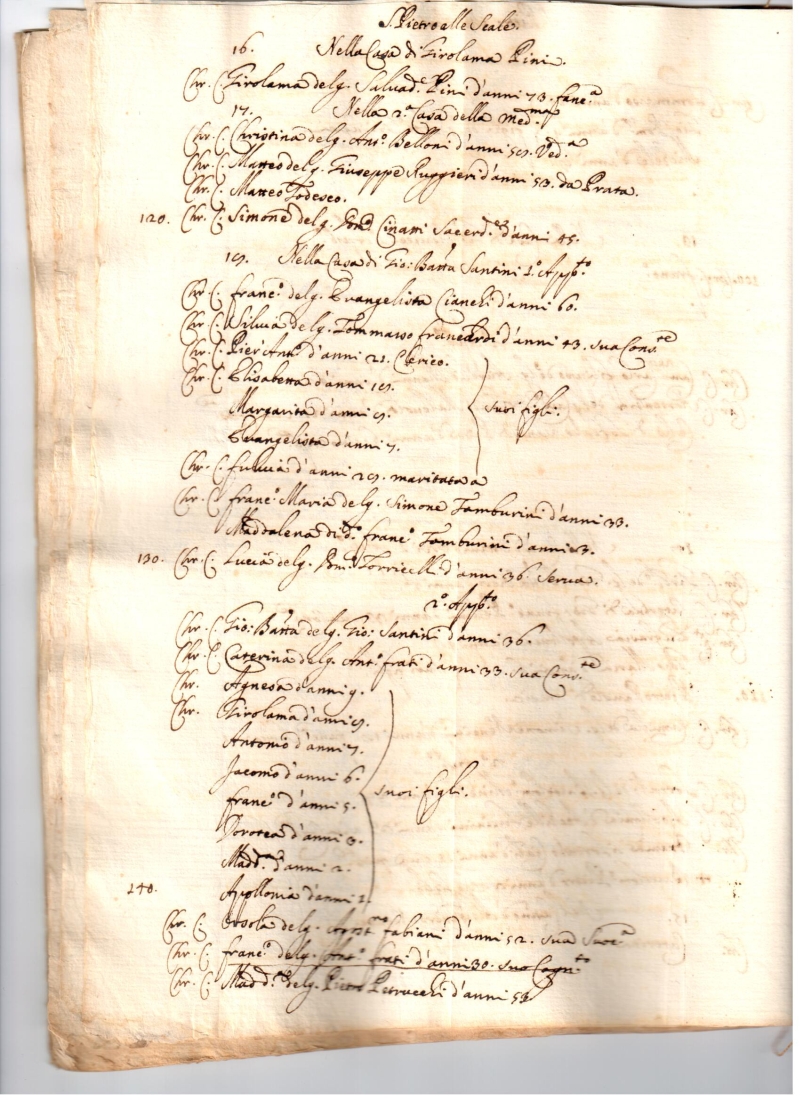 S. Pietro alle Scale.
16. Nella Casa di Girolama Pini.
Chr. C. Girolama del q. Salvad.e Pini d'anni 73. fanc.a
17. Nella 2.a Casa della Med.ma
Chr. C. Christina del q. Ant.o Belloni d'anni 59. Ved.a
Chr. C. Matteo del q. Giuseppe Ruggieri d'anni 53. da Prata.
Chr. C. Matteo Todesco.
120. Chr. C. Simone del q. Cinatti Sacerd.e d'anni 45.
19. Nella Casa di Gio: Batta Santini 1.o App.to
Chr. C. Franc.o del q. Evangelista Cianchi d'anni 60.
Chr. C. Silvia del q. Tommaso Francardi d'anni 43. sua Cons.te
Chr. C. Pier Ant.o d'anni 21. Clerico.
Chr. C. Elisabetta d'anni 19.
Margarita d'anni 9. suoi figli.
Evangelista d'anni 7.
Chr. C. Fulvia d'anni 29. maritata a
Chr. C. Franc.o Maria del q. Simone Tamburini d'anni 33.
Maddalena di d.o Franc.o Tamburini d'anni 3.
130. Chr. C. Lucia del q. Torricelli d'anni 36. Serva.
2.o App.to
Chr. C. Gio: Batta del q. Gio: Santini d'anni 36.
Chr. C. Caterina del q. Ant.o Frati d'anni 33. sua Cons.te
Chr. Agnesa d'anni 9.
Chr. Girolama d'anni 9.
Antonio d'anni 7.
Jacomo d'anni 6. suoi figli.
Franc.o d'anni 5.
Dorotea d'anni 3.
Madd.a d'anni 2.
140. Apollonia d'anni 1.
Chr. C. Orsola del q. Agost.no Fabiani d'anni 52. sua Suoc.a
Chr. C. Franc.o del q. Ant.o Frati d'anni 30. suo Cogn.to
Chr. C. Madd.a del q. Pietro Petrucchi d'anni 53